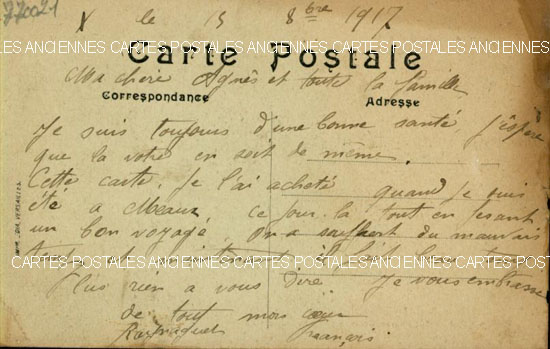 770021
X le 15 8bre 1917
CARTES POSTALES ANCIENNES CARTES POSTALES ANCIENNES CARTES POSTALES ANCIENNES
Carte Postale
Ma chère Agnès et toute la famille
Correspondance Adresse
Je suis toujours d'une bonne santé j'espère
que la votre en soit de même.
Cette carte. Je l'ai acheté quand je suis
été a Meaux, ce jour. la tout en fesant
un bon voyage. On a souffert du mauvais
CARTES POSTALES ANCIENNES CARTES POSTALES ANCIENNES CARTES POSTALES ANCIENNES
Plus rien a vous dire. Je vous embrasse
de tout mon cœur
François.